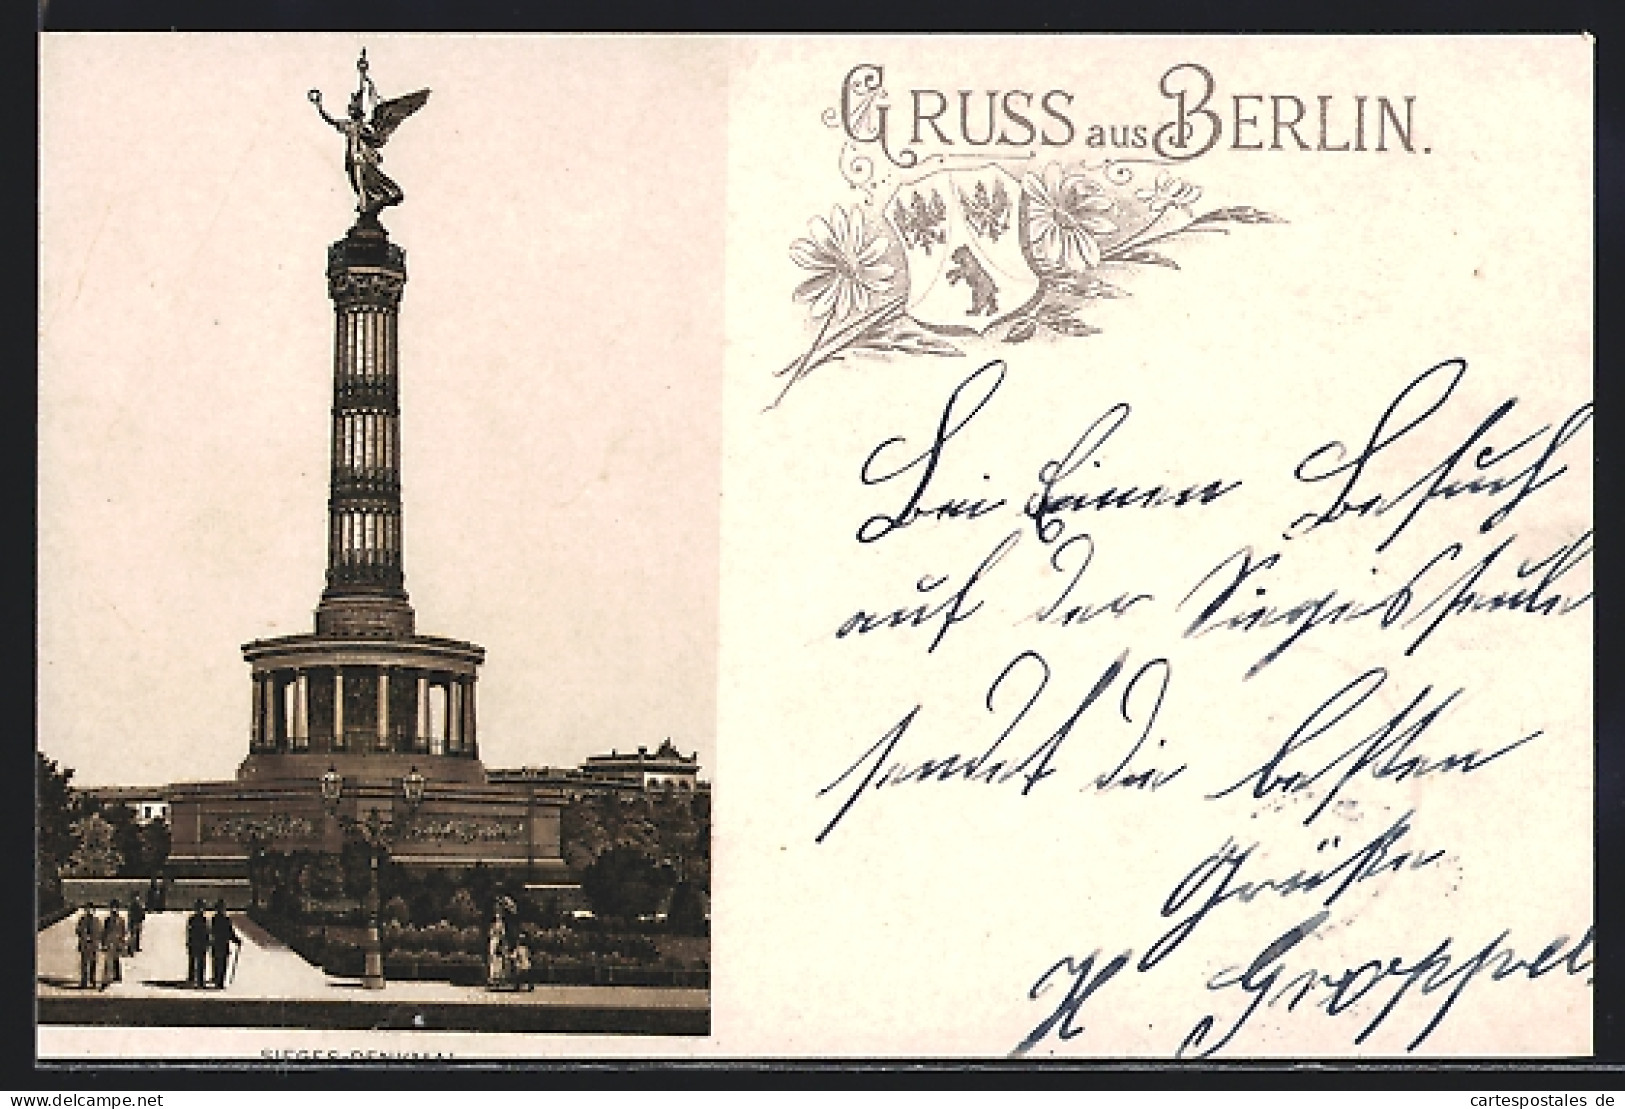 GRUSS aus BERLIN.
Bei Einen Besuch
auf der Siegesseule
sendet die besten
Grüße
H Groppel
SIEGES-DENKMAL
delcampe.net
cartespostales de